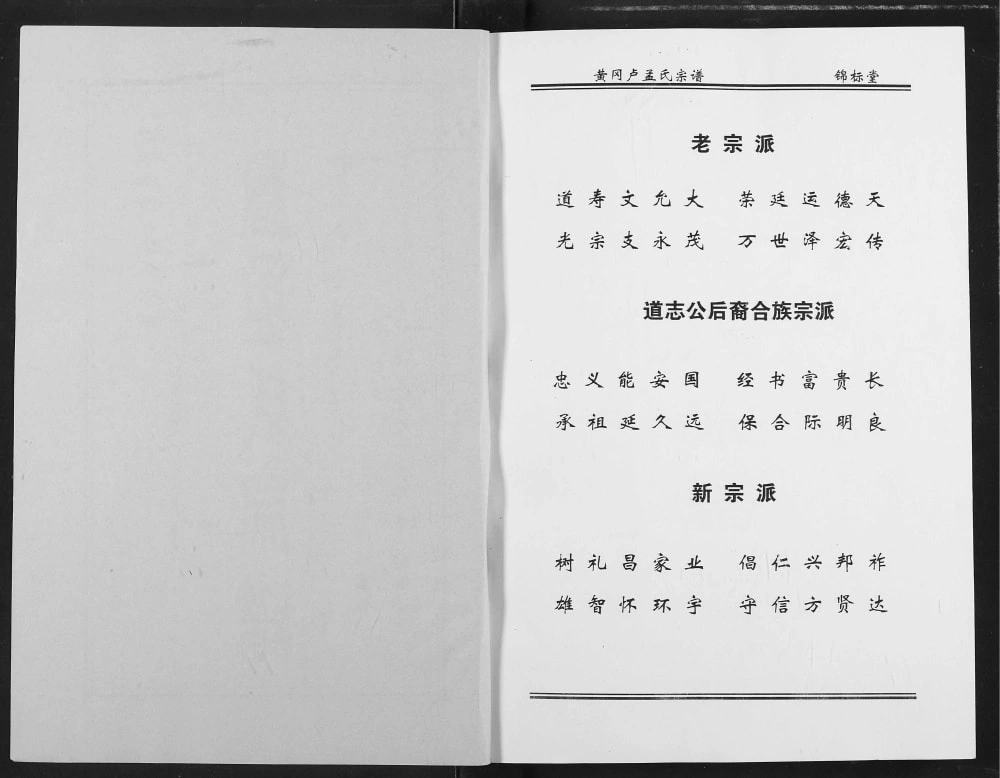 黄冈卢孟氏宗谱 锦标堂
老宗派
道寿文允大 荣廷运德天
光宗支永茂 万世泽宏传
道志公后裔合族宗派
忠义能安国 经书富贵长
承祖延久远 保合际明良
新宗派
树礼昌家业 倡仁兴邦祚
雄智怀环宇 守信方贤达